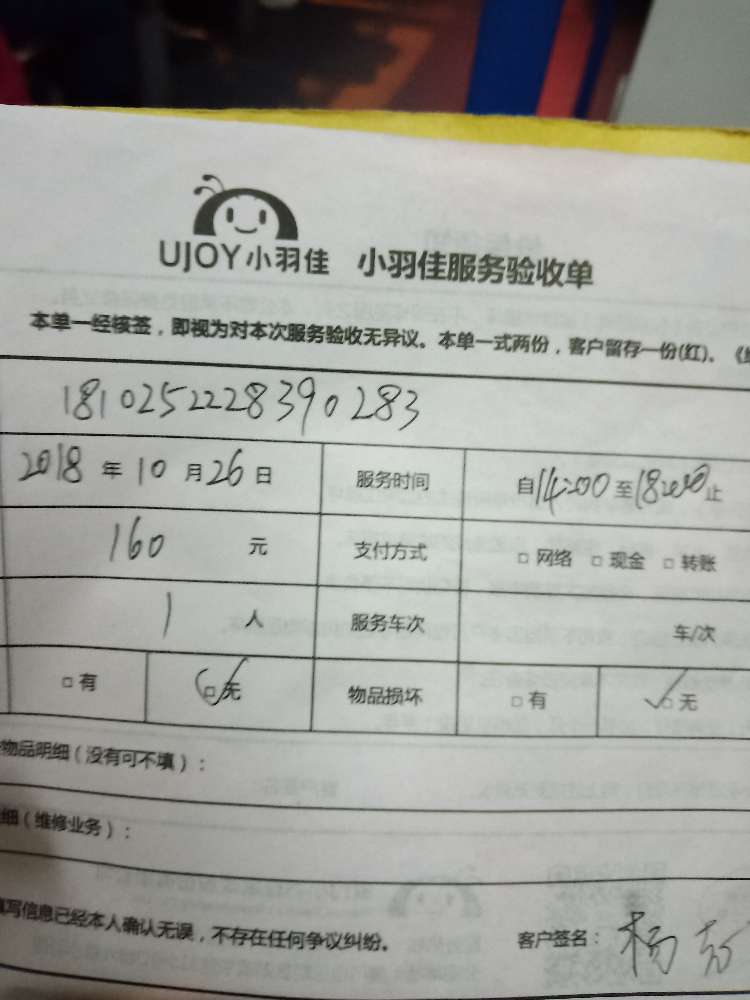 UJOY小羽佳 小羽佳服务验收单
本单一经核签，即视为对本次服务验收无异议。本单一式两份，客户留存一份(红)。
1810252228390283
2018 年 10 月 26 日 服务时间 自 14:00 至 18:00 止
160 元 支付方式 □ 网络 □ 现金 □ 转账
1 人 服务车次 车/次
□ 有 □ 无 物品损坏 □ 有 □ 无
物品明细（没有可不填）：
细（维修业务）：
填写信息已经本人确认无误，不存在任何争议纠纷。 客户签名： 杨